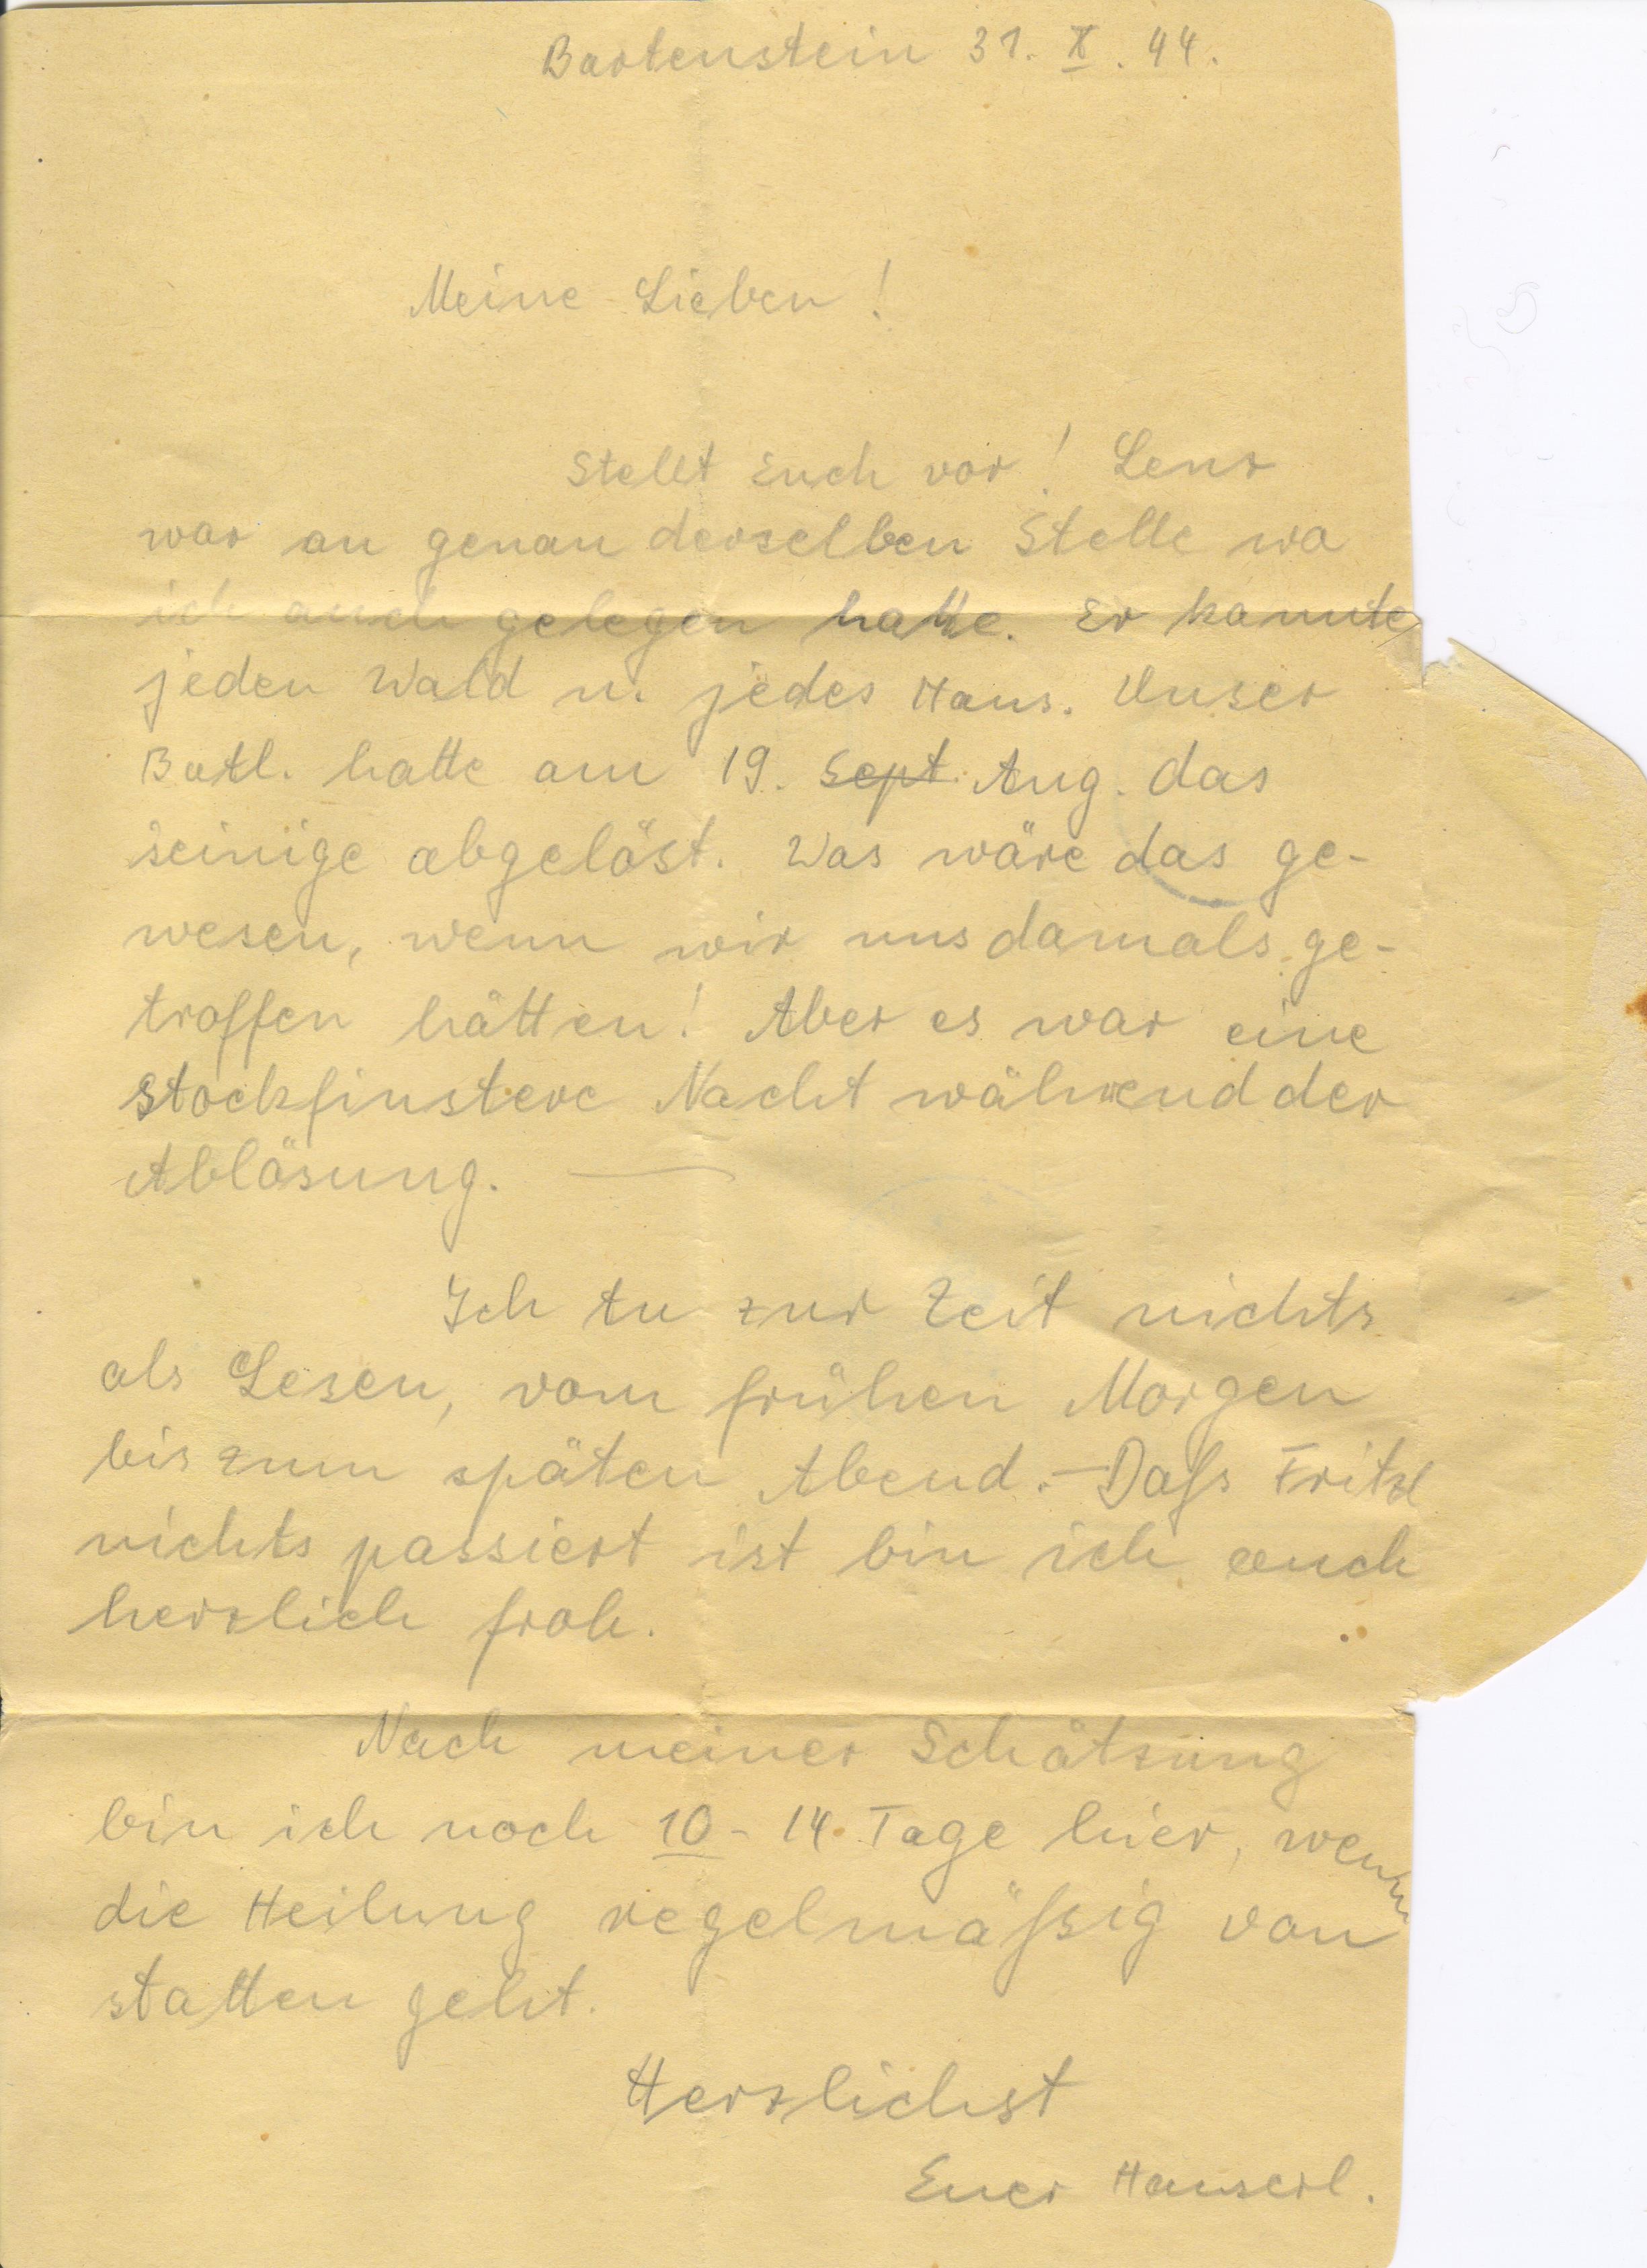 Bartenstein 31. X. 44.
Meine Lieben!
Stellt Euch vor! Lenz
war an genau derselben Stelle wo
ich auch gelegen hatte. Er kannte
jeden Wald u. jedes Haus. Unser
Batl. hatte am 19. Sept. Aug. das
seinige abgelöst. Was wäre das ge-
wesen, wenn wir uns damals ge-
troffen hätten! Aber es war eine
stockfinstere Nacht während der
Ablösung. —
Ich tu zur Zeit nichts
als Lesen, vom frühen Morgen
bis zum späten Abend. — Daß Fritzl
nichts passiert ist bin ich auch
herzlich froh.
Nach meiner Schätzung
bin ich noch 10 - 14 Tage hier, wenn
die Heilung regelmäßig von
statten geht.
Herzlichst
Euer Hanserl.